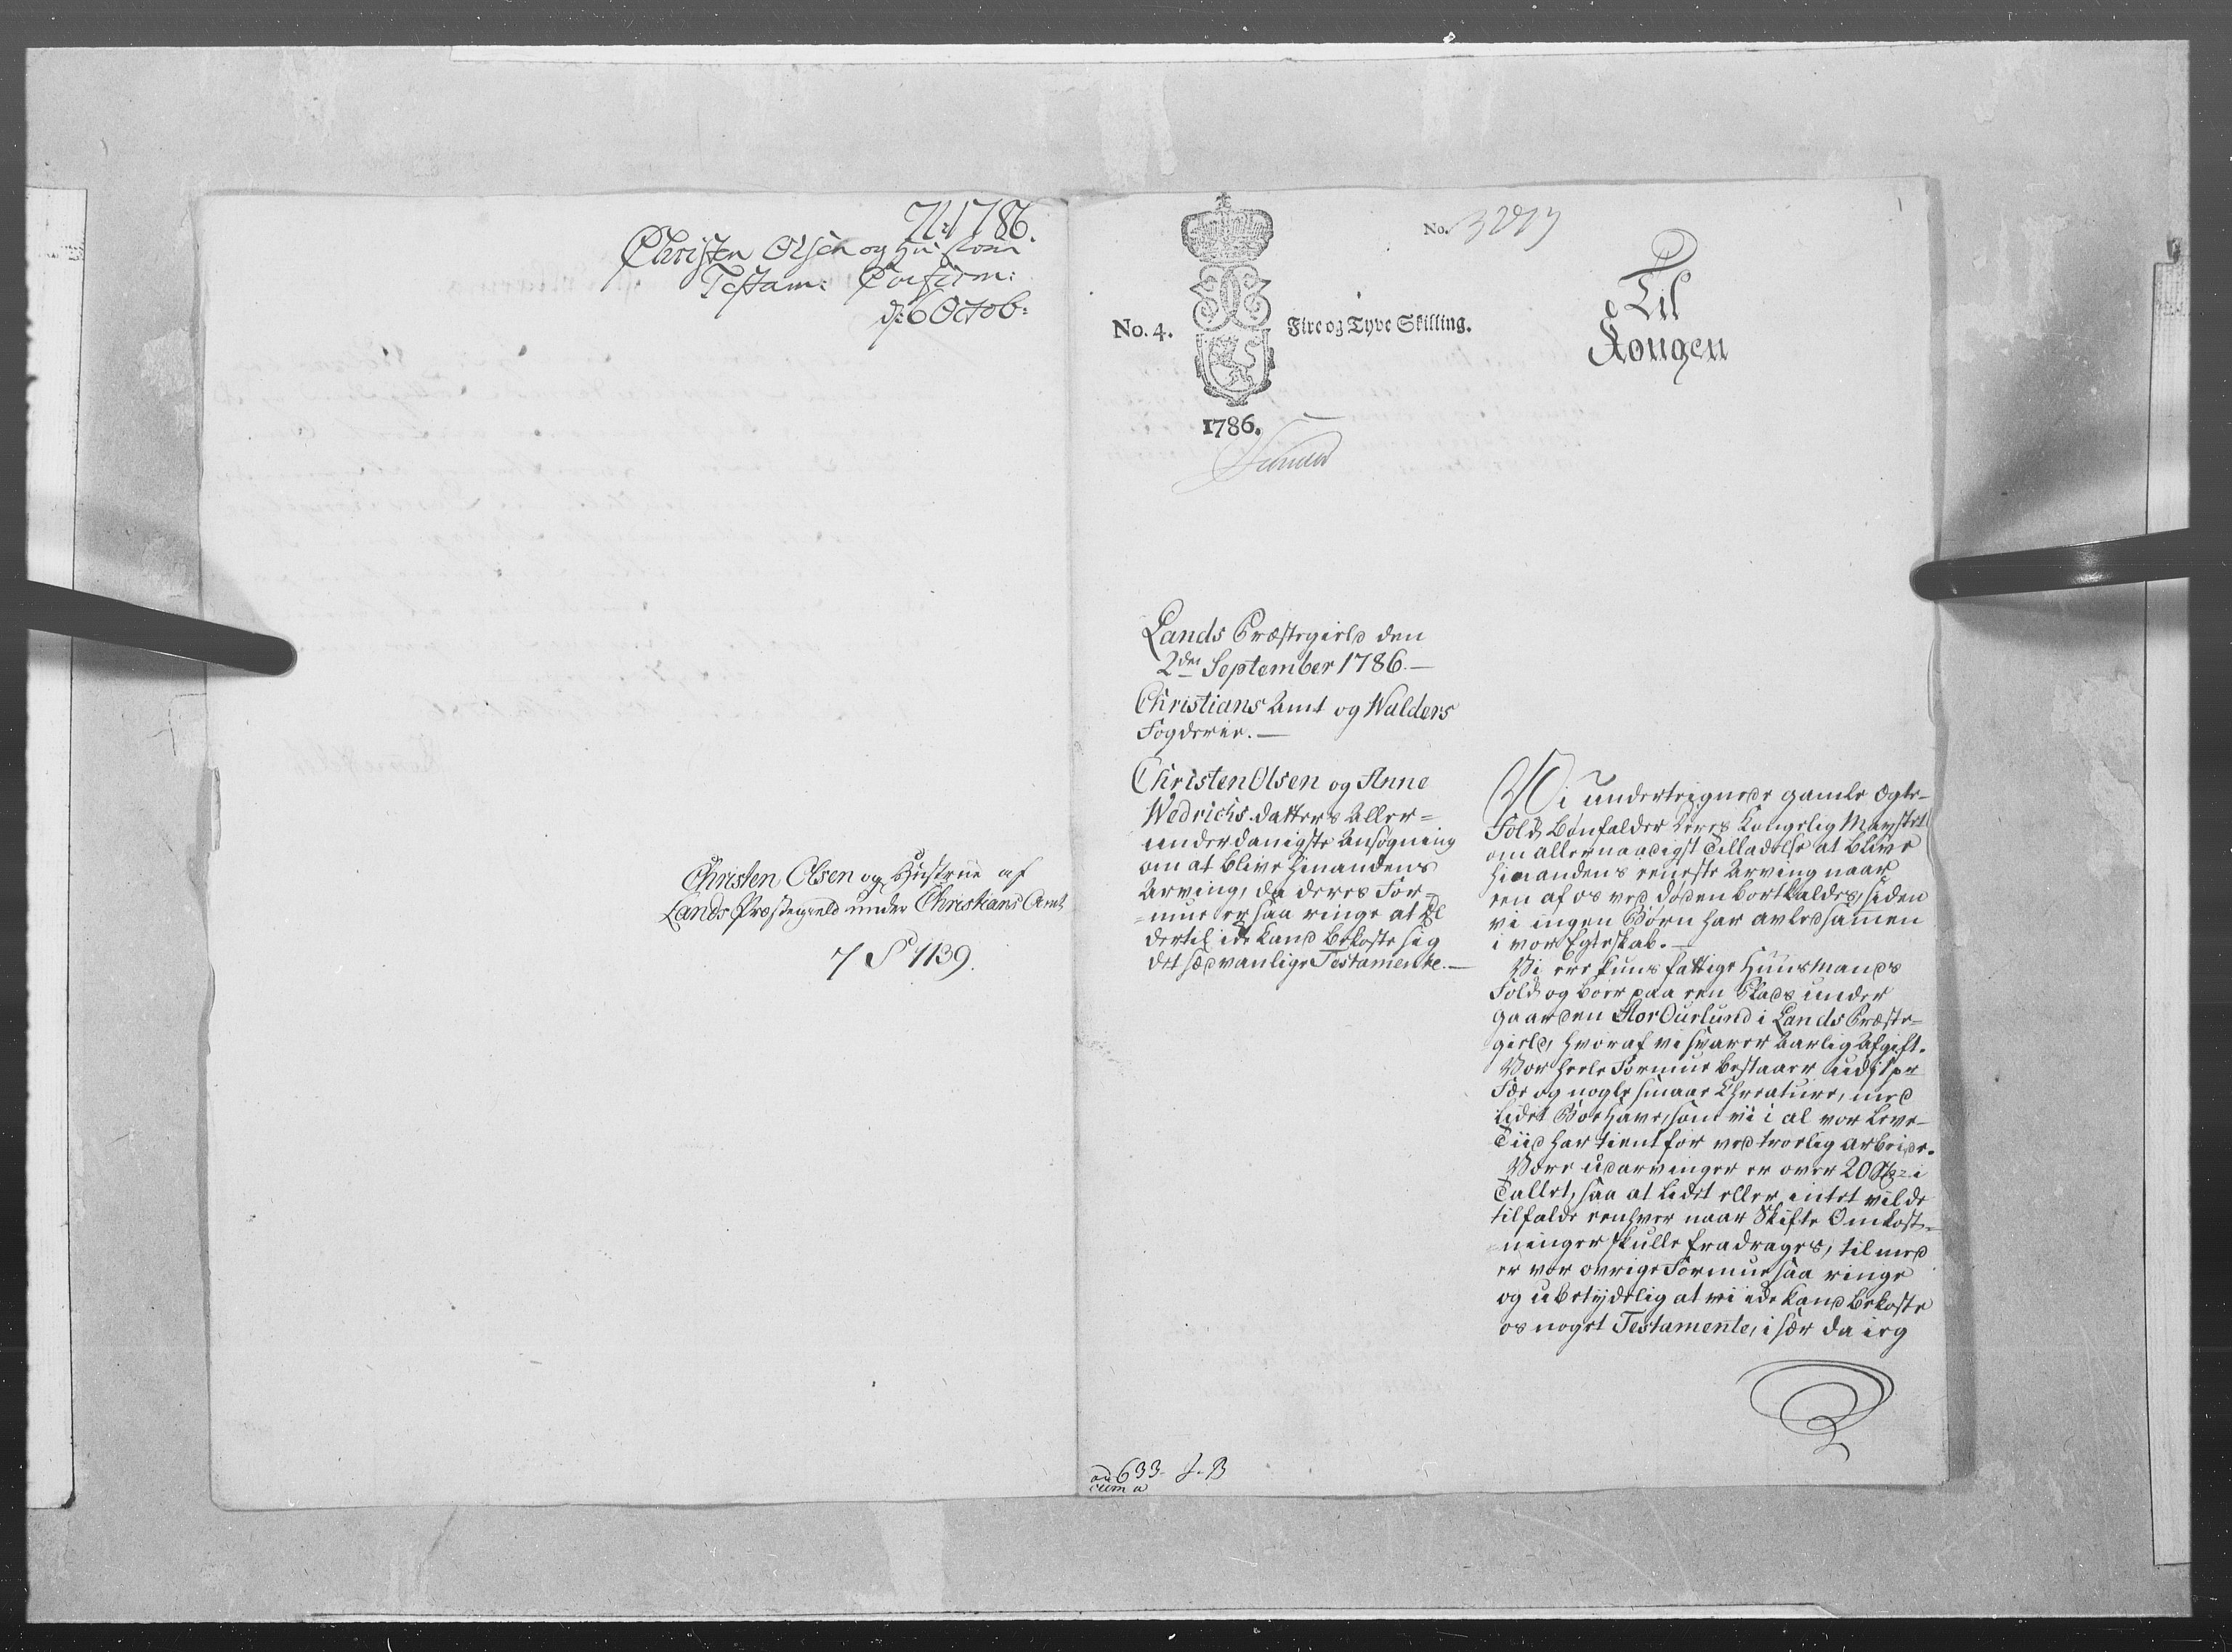 N: 1786.
Christen Olsen og Hustrue
Testam: Confirm:
d: 6 Octob:
Christen Olsen og Hustrue af
Lands Præstegield under Christians Amt
7 S 1139.
No. 3293
No. 4.
Fire og Tyve Skilling.
1786.
Til
Kongen
Lands Præstegield den
2den September 1786.
Christians Amt og Walders
Fogderie.
Christen Olsen og Anne
Wedrichs datters Aller=
underdanigste Ansøgning
om at blive hinandens
Arving, da deres For=
=mue er saa ringe at de
dertil ide kand bekoste sig
det sædvanlige Testamente.
Wi underteignede gamle Ægte-
Folk bønfalder Deres Kongelig Mayestet
om allernaadigst Tilladelse at blive
hinandens eeneste Arving naar
een af os ved Døden bortkaldes, siden
vi ingen Børn har avled sammen
i vor Egteskab.
Vi ere kuns fattige Huusmands
Folk og boer paa een Plads under
gaarden Stor Ourlund i Lands Præste=
gield, hvoraf vi svarer Aarlig Afgift.
Vor heele Formue bestaaer udi
Fæ og nogle smaae Chreature, med
lidet Boehave, som vi i al vor Leve-
Tiid har tient for ved troelig arbeide.
Vore udarvinger er over 20 i
Tallet, saa at lidet eller intet vilde
tilfalde eenhver naar Skifte Omkost=
=ninger skulle fradrages, tilmed
er vor øvrige Formue saa ringe
og ubetydelig at vi ide kand bekoste
os noget Testamente, i sær da ieg
ad 633. L. B
cum a